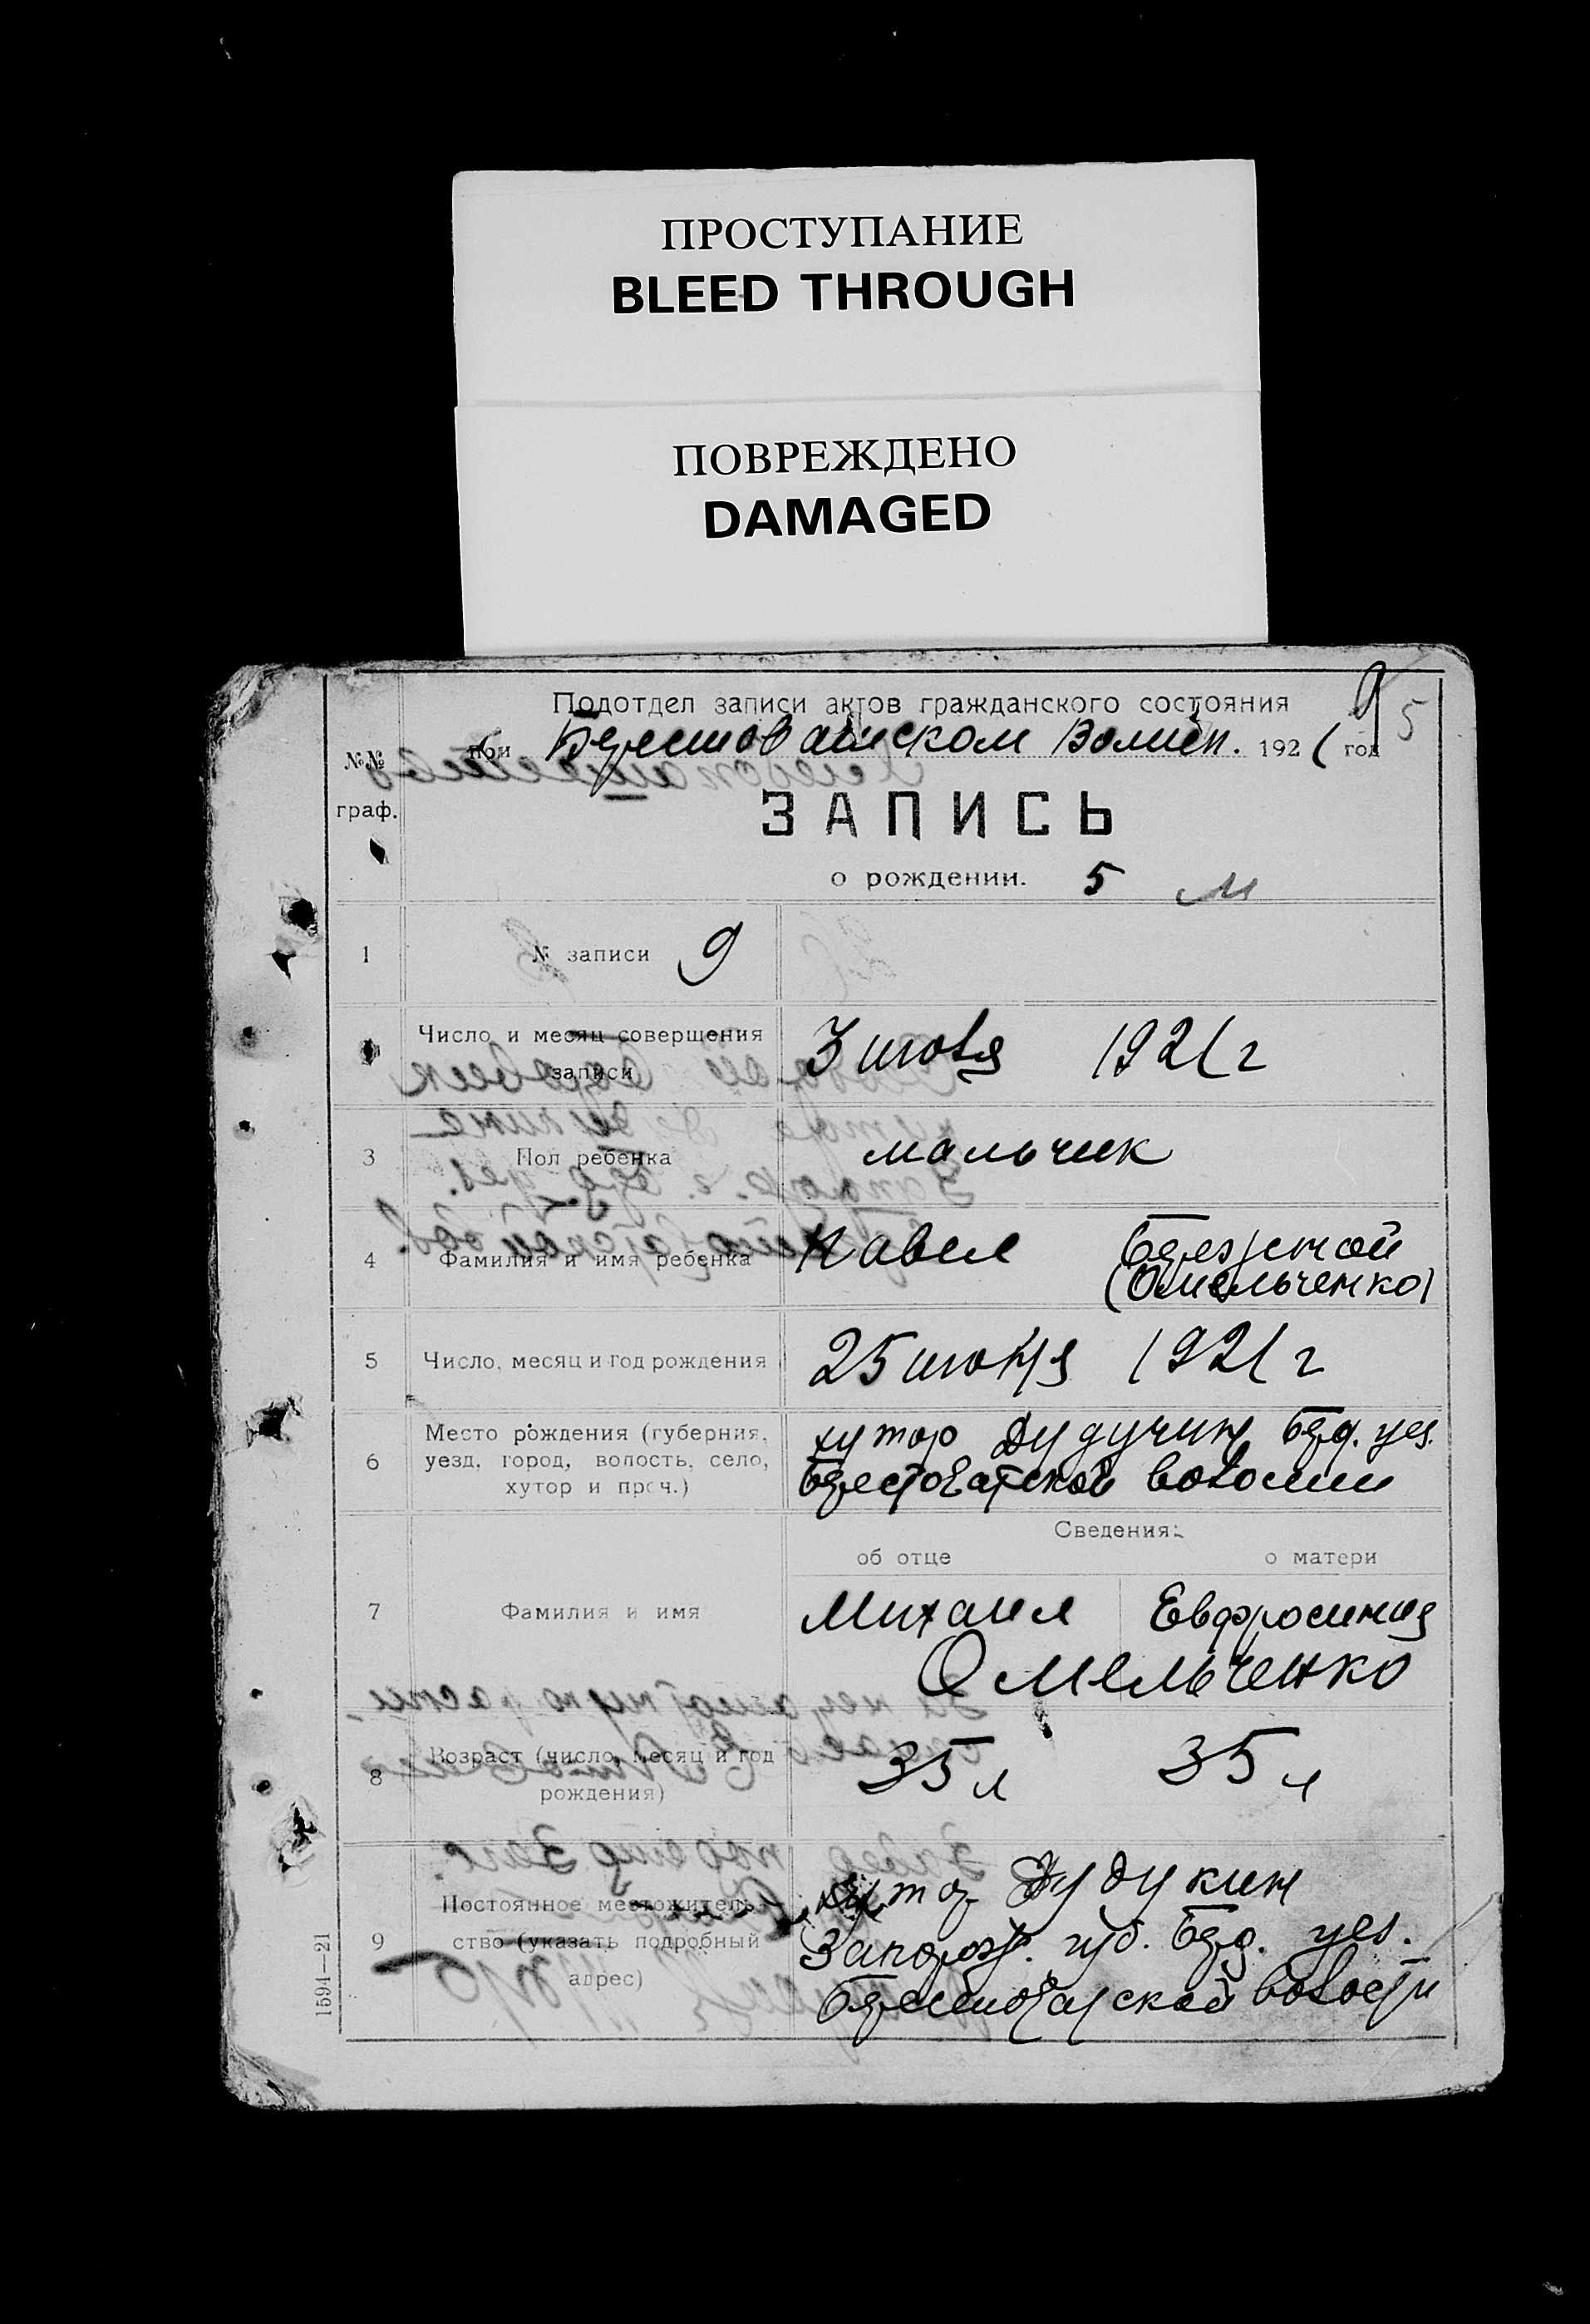 ПРОСТУПАНИЕ
BLEED THROUGH
ПОВРЕЖДЕНО
DAMAGED
9
5
Подотдел записи актов гражданского состояния
при Берестоватском Волисп. 1921 год
№№
граф.
ЗАПИСЬ
о рождении. 5 м
1 № записи 9
Число и месяц совершения
записи
3 июля 1921 г
3 Пол ребенка мальчик
4 Фамилия и имя ребенка Павел
(Омельченко)
5 Число, месяц и год рождения 25 июня 1921 г
6 Место рождения (губерния,
уезд, город, волость, село,
хутор и проч.)
хутор Берд. уез.
Берестоватской волости
Сведения:
об отце о матери
7 Фамилия и имя Михаил Евфросиния
Омельченко
8 Возраст (число, месяц и год
рождения)
35 л 35 л
9 Постоянное местожитель-
ство (указать подробный
адрес)
хутор Дудукин
Запорож. губ. Берд. уез.
Берестоватской волости
1594—21